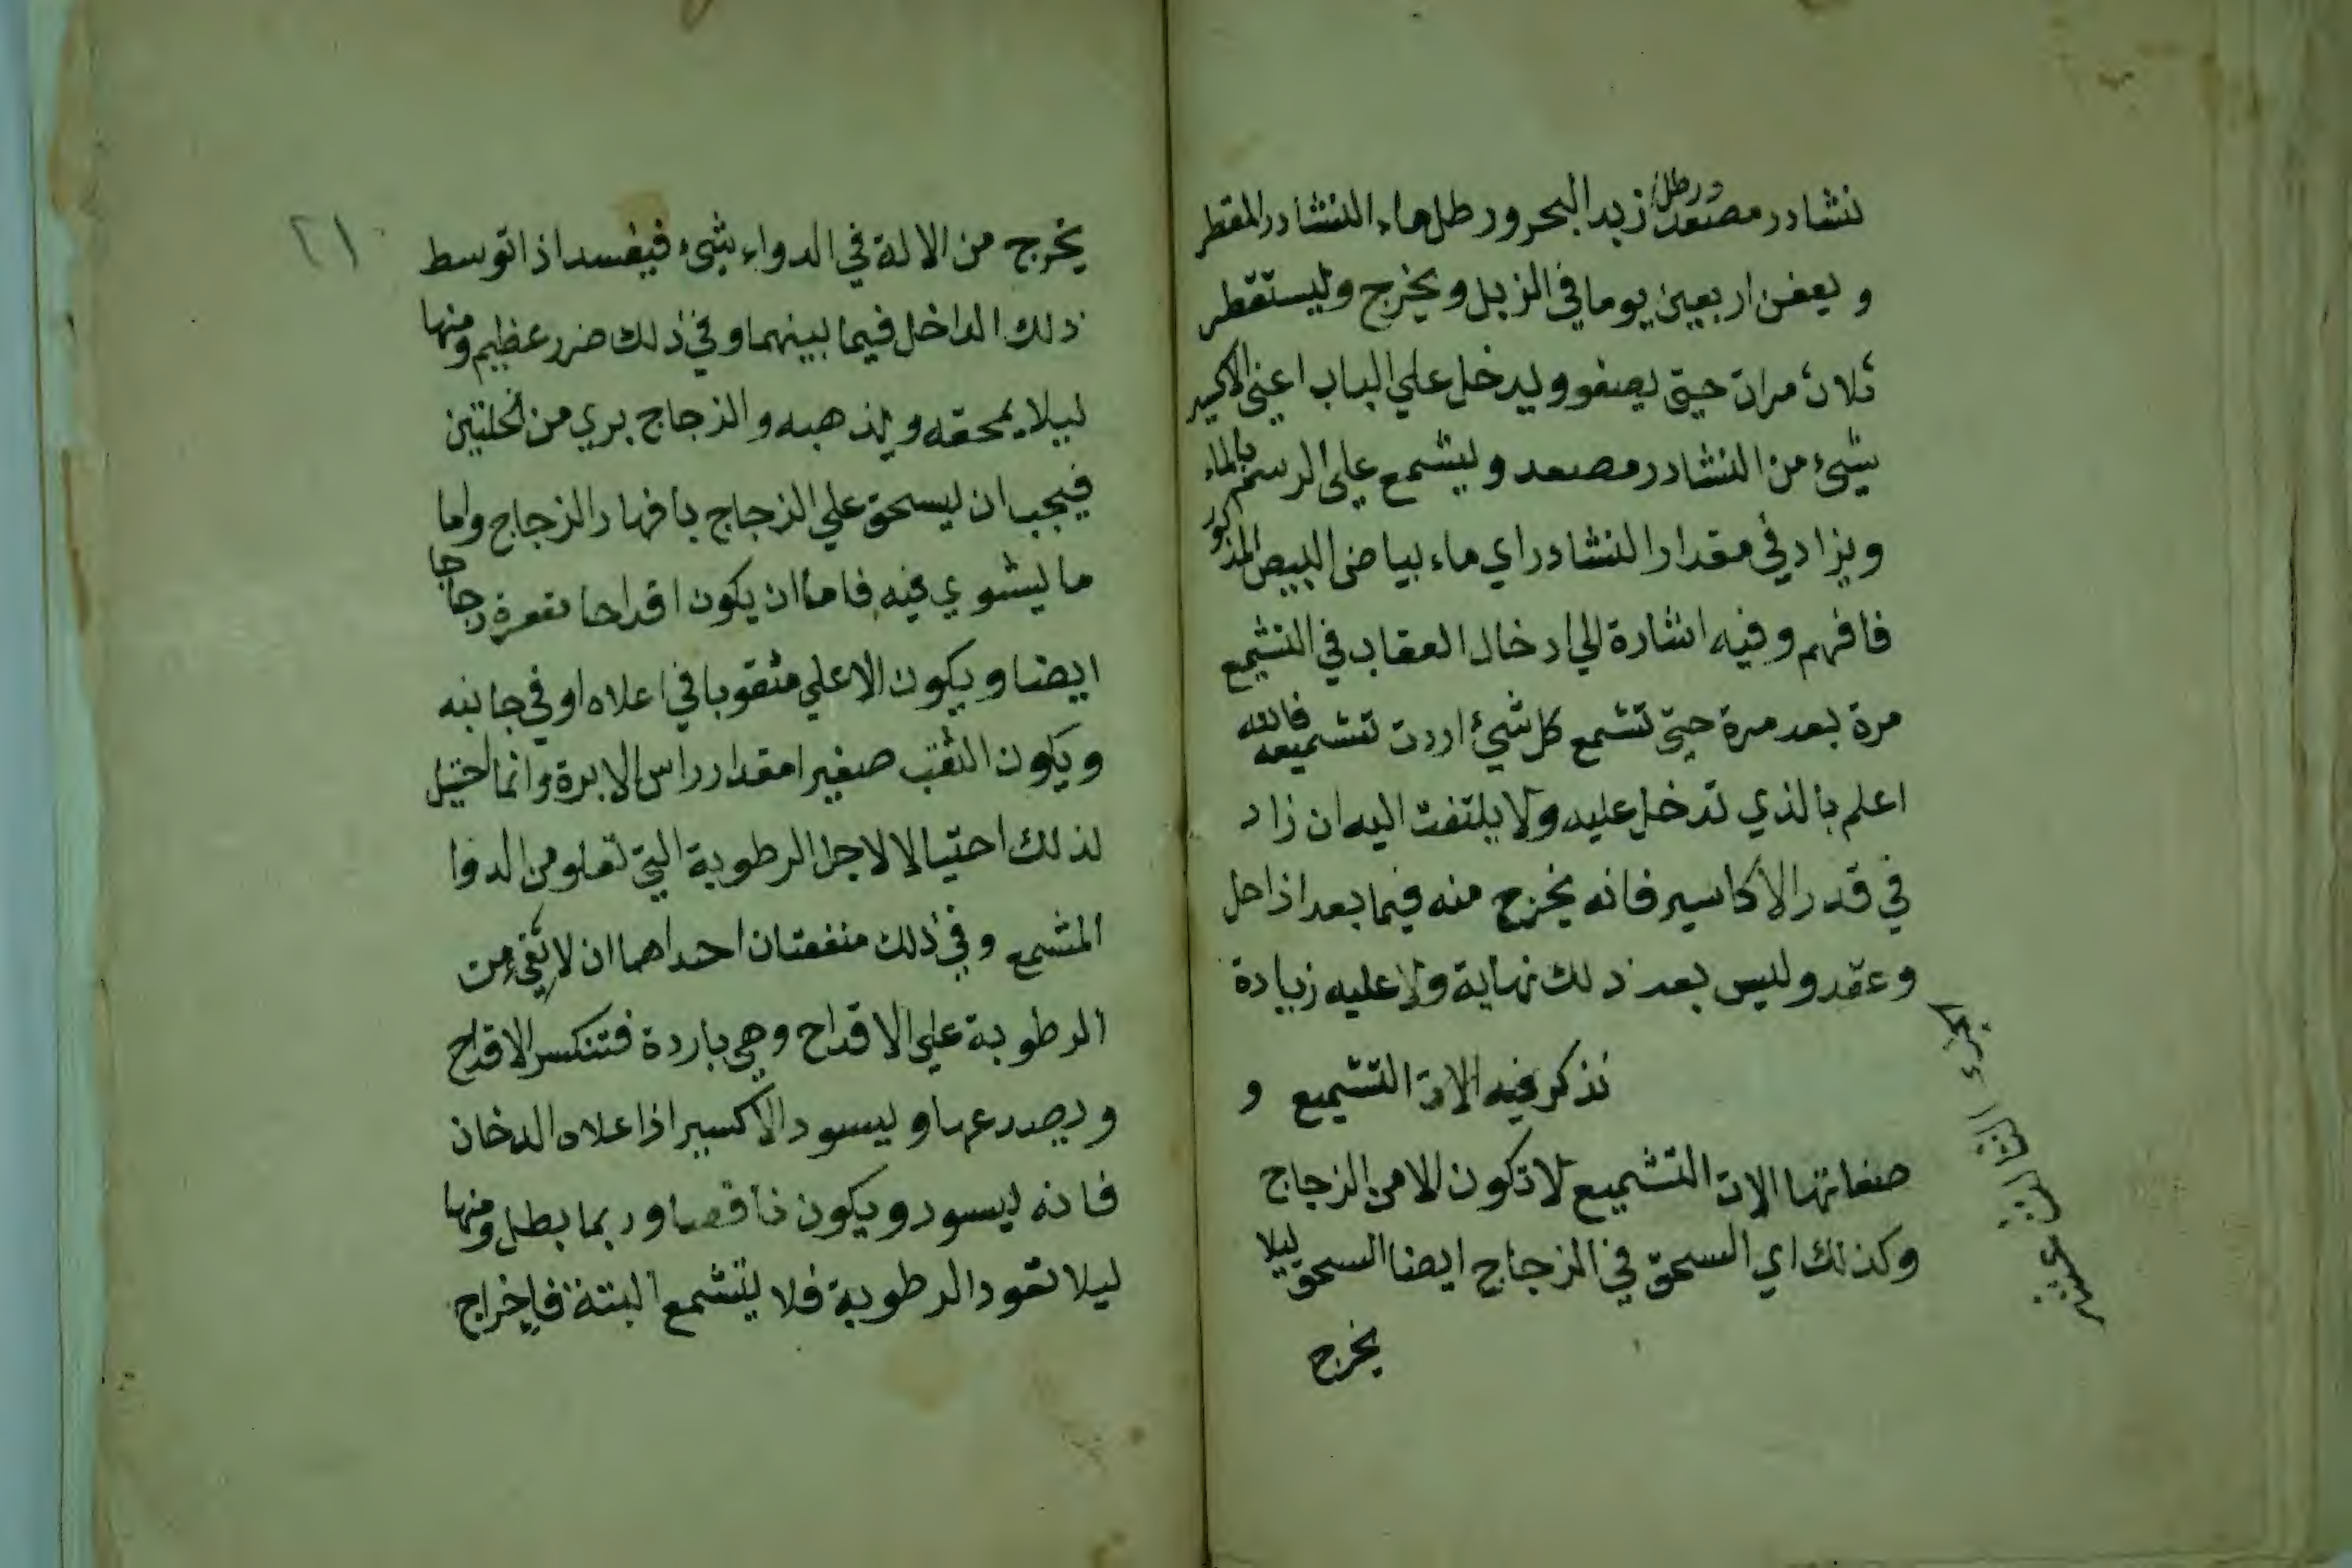 نشادر مصعد ورطل زبد البحر ورطل ماء النشادر المقطر
ويعفن اربعين يوما في الزبل ويخرج ويستقطر
ثلاث مرات حتى يصفو ويدخل علي الباب اعني الاكسير
شيء من النشادر مصعد ويشمع علي الرسم بالماء
ويزاد في مقدار النشادر اي ماء بياض البيض المذكور
فافهم وفيه اشارة الي ادخال العقاب في التشميع
مرة بعد مرة حتى تشمع كل شيء اردت تشميعه فالله
اعلم بالذي تدخل عليه ولا يلتفت اليه ان زاد
في قدر الاكاسير فانه يخرج منه فيما بعد اذا حل
وعقد وليس بعد ذلك نهاية ولا عليه زيادة
نذكر فيه الات التشميع و
صفاتها الات التشميع لا تكون الا من الزجاج
وكذلك اي السحق في الزجاج ايضا السحق ليلا
يخرج
الجزء
٢١
يخرج من الالة في الدواء شيء فيفسد اذا توسط
ذلك الداخل فيما بينهما وفي ذلك ضرر عظيم ومنها
ليلا يمحقه ويذهبه والزجاج بري من الخلتين
فيجب ان يسحق علي الزجاج بافهار الزجاج واما
ما يشوي فيه فاما ان يكون اقداحا مقعرة زجاجا
ايضا ويكون الاعلي مثقوبا في اعلاه او في جانبه
ويكون الثقب صغيرا مقدار راس الابرة وانما احتيل
لذلك احتيالا لاجل الرطوبة التي تعلو من الدوا
المشمع وفي ذلك منفعتان احداهما ان لا من
الرطوبة علي الاقداح وهي باردة فتنكسر الاقداح
ويصدر عها ويسود الاكسير اذا علاه الدخان
فانه يسود ويكون ناقصا وربما بطل ومنها
ليلا تعود الرطوبة فلا يتشمع البتة فاخراج